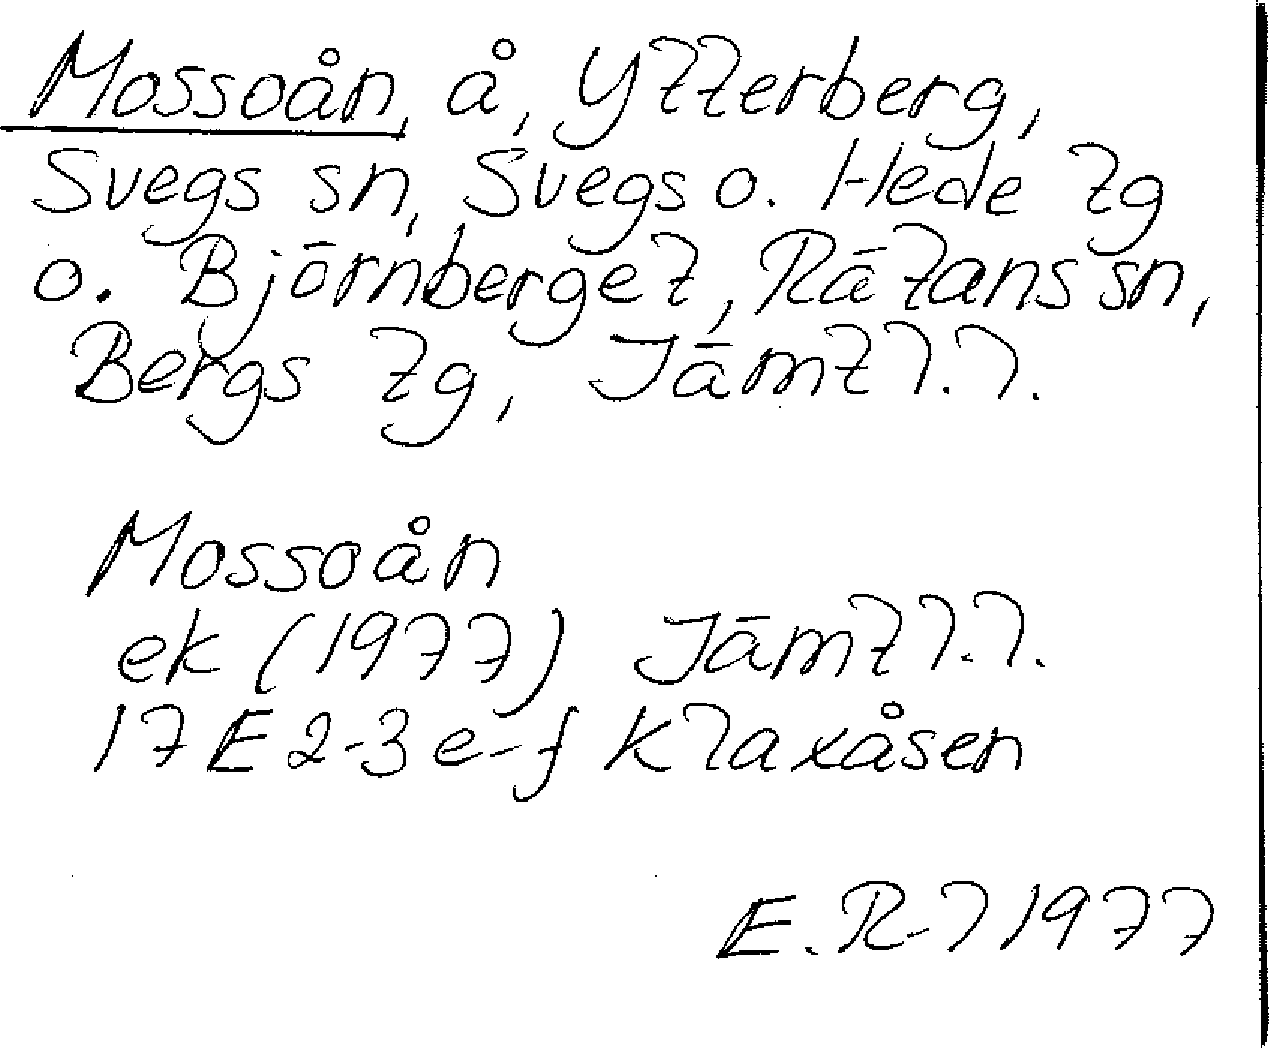 Mossoån, å, Ytterberg,
Svegs sn, Svegs o. Hede tg
o. Björnberget, Rätans sn,
Bergs tg, Jämtl.l.
Mossoån
ek (1977) Jämtl.l.
17E 2-3 e-f Klaxåsen
E. R-l 1977